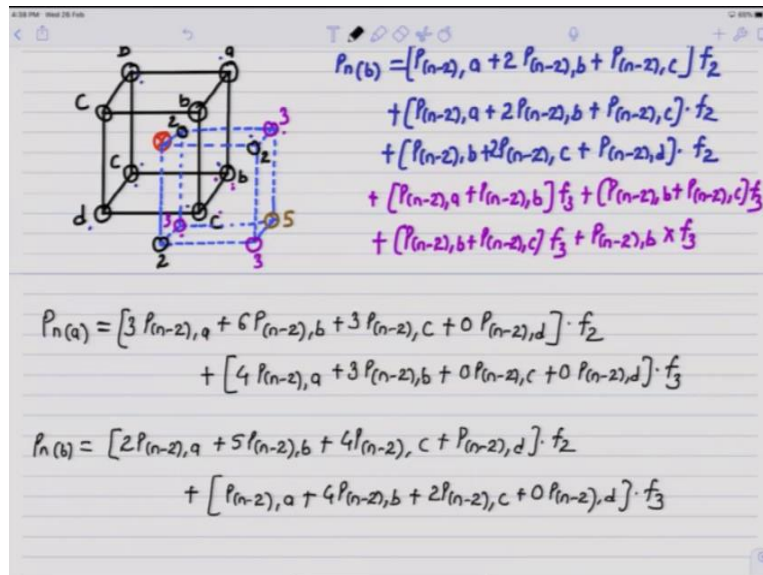 4:38 PM Wed 26 Feb
60%
D
a
C
b
2
3
2
C
b
d
C
3
5
2
3
Pn(b) = [P(n-2), a + 2 P(n-2), b + P(n-2), c] f2
+ [P(n-2), a + 2 P(n-2), b + P(n-2), c] · f2
+ [P(n-2), b + 2P(n-2), c + P(n-2), d] · f2
+ [P(n-2), a + P(n-2), b] f3 + (P(n-2), b + P(n-2), c] f3
+ (P(n-2), b + P(n-2), c] f3 + P(n-2), b × f3
Pn(a) = [3 P(n-2), a + 6 P(n-2), b + 3 P(n-2), c + 0 P(n-2), d] · f2
+ [4 P(n-2), a + 3 P(n-2), b + 0 P(n-2), c + 0 P(n-2), d] · f3
Pn(b) = [2P(n-2), a + 5P(n-2), b + 4P(n-2), c + P(n-2), d] · f2
+ [P(n-2), a + 4P(n-2), b + 2P(n-2), c + 0P(n-2), d] · f3